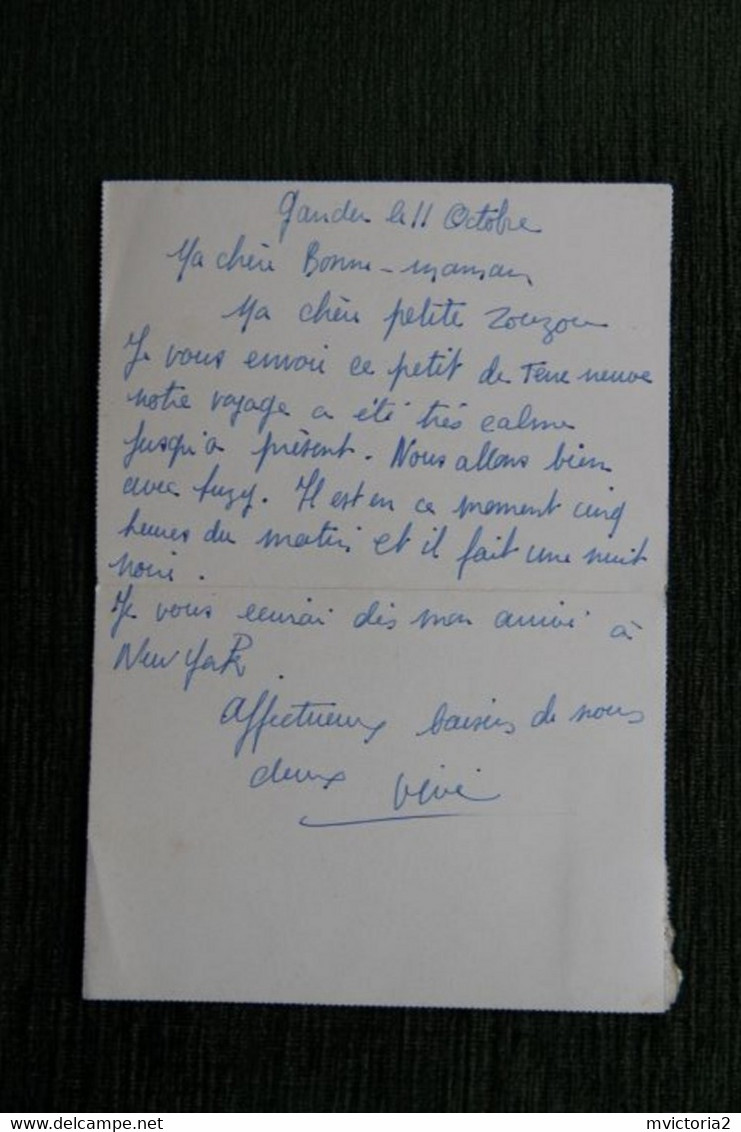 Gander le 11 Octobre
Ma chère Bonne-maman
Ma chère petite Zouzou
Je vous envoi ce petit de Terre neuve
notre voyage a été très calme
jusqu'a présent. Nous allons bien
avec Suzy. Il est en ce moment cinq
heures du matin et il fait une nuit
noire.
Je vous ecrirai dès mon arrivé à
New York
Affectueux baisers de nous
deux Vévé
mvictoria2
www.delcampe.net